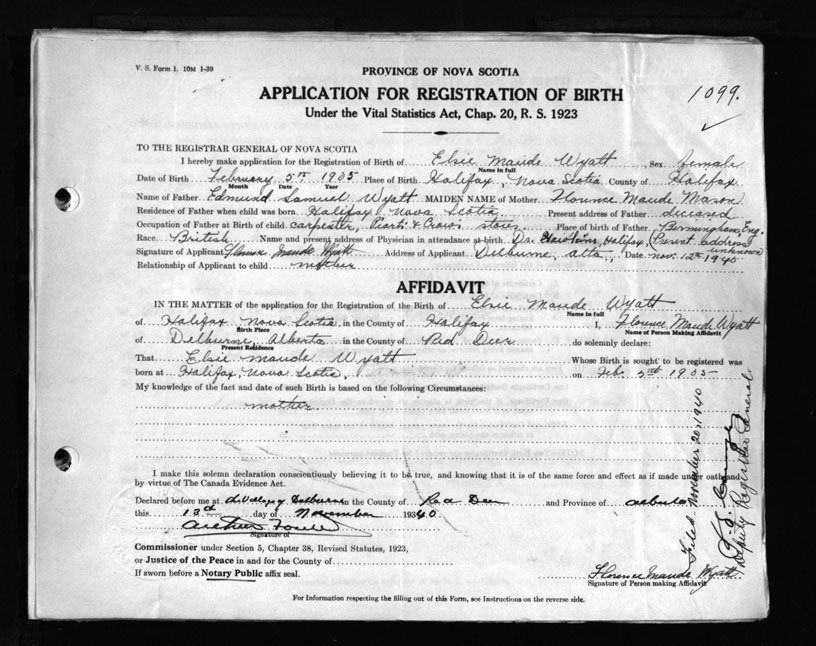 V. S. Form 1. 10M 1-39
PROVINCE OF NOVA SCOTIA
APPLICATION FOR REGISTRATION OF BIRTH
1099.
Under the Vital Statistics Act, Chap. 20, R. S. 1923
TO THE REGISTRAR GENERAL OF NOVA SCOTIA
I hereby make application for the Registration of Birth of Elsie Maude Wyatt, Sex female
Name in full
Date of Birth February 5th 1905 Place of Birth Halifax, Nova Scotia County of Halifax
Month Date Year
Name of Father Edmund Samuel Wyatt MAIDEN NAME of Mother Florence Maude Mason
Residence of Father when child was born Halifax Nova Scotia Present address of Father deceased
Occupation of Father at Birth of child carpenter, stores Place of birth of Father Birmingham, Eng.
Race British Name and present address of Physician in attendance at birth Halifax, Present address unknown
Signature of Applicant Florence Maude Wyatt Address of Applicant Delburne, Alta, Date Nov. 12th 1940
Relationship of Applicant to child mother
AFFIDAVIT
IN THE MATTER of the application for the Registration of the Birth of Elsie Maude Wyatt
Name in full
of Halifax Nova Scotia, in the County of Halifax I, Florence Maude Wyatt
Birth Place Name of Person Making Affidavit
of Delburne, Alberta in the County of Red Deer do solemnly declare:
Present Residence
That Elsie Maude Wyatt Whose Birth is sought to be registered was
born at Halifax, Nova Scotia, on Feb. 5th 1905
My knowledge of the fact and date of such Birth is based on the following Circumstances:
mother
I make this solemn declaration conscientiously believing it to be true, and knowing that it is of the same force and effect as if made under oath and
by virtue of The Canada Evidence Act.
Declared before me at the Village of Delburne in the County of Red Deer and Province of Alberta
this 12th day of November 1940
Signature of
Commissioner under Section 5, Chapter 38, Revised Statutes, 1923,
or Justice of the Peace in and for the County of
If sworn before a Notary Public affix seal.
Florence Maude Wyatt
Signature of Person making Affidavit
For Information respecting the filling out of this Form, see Instructions on the reverse side.
Filed November 20, 1940
Deputy Registrar General